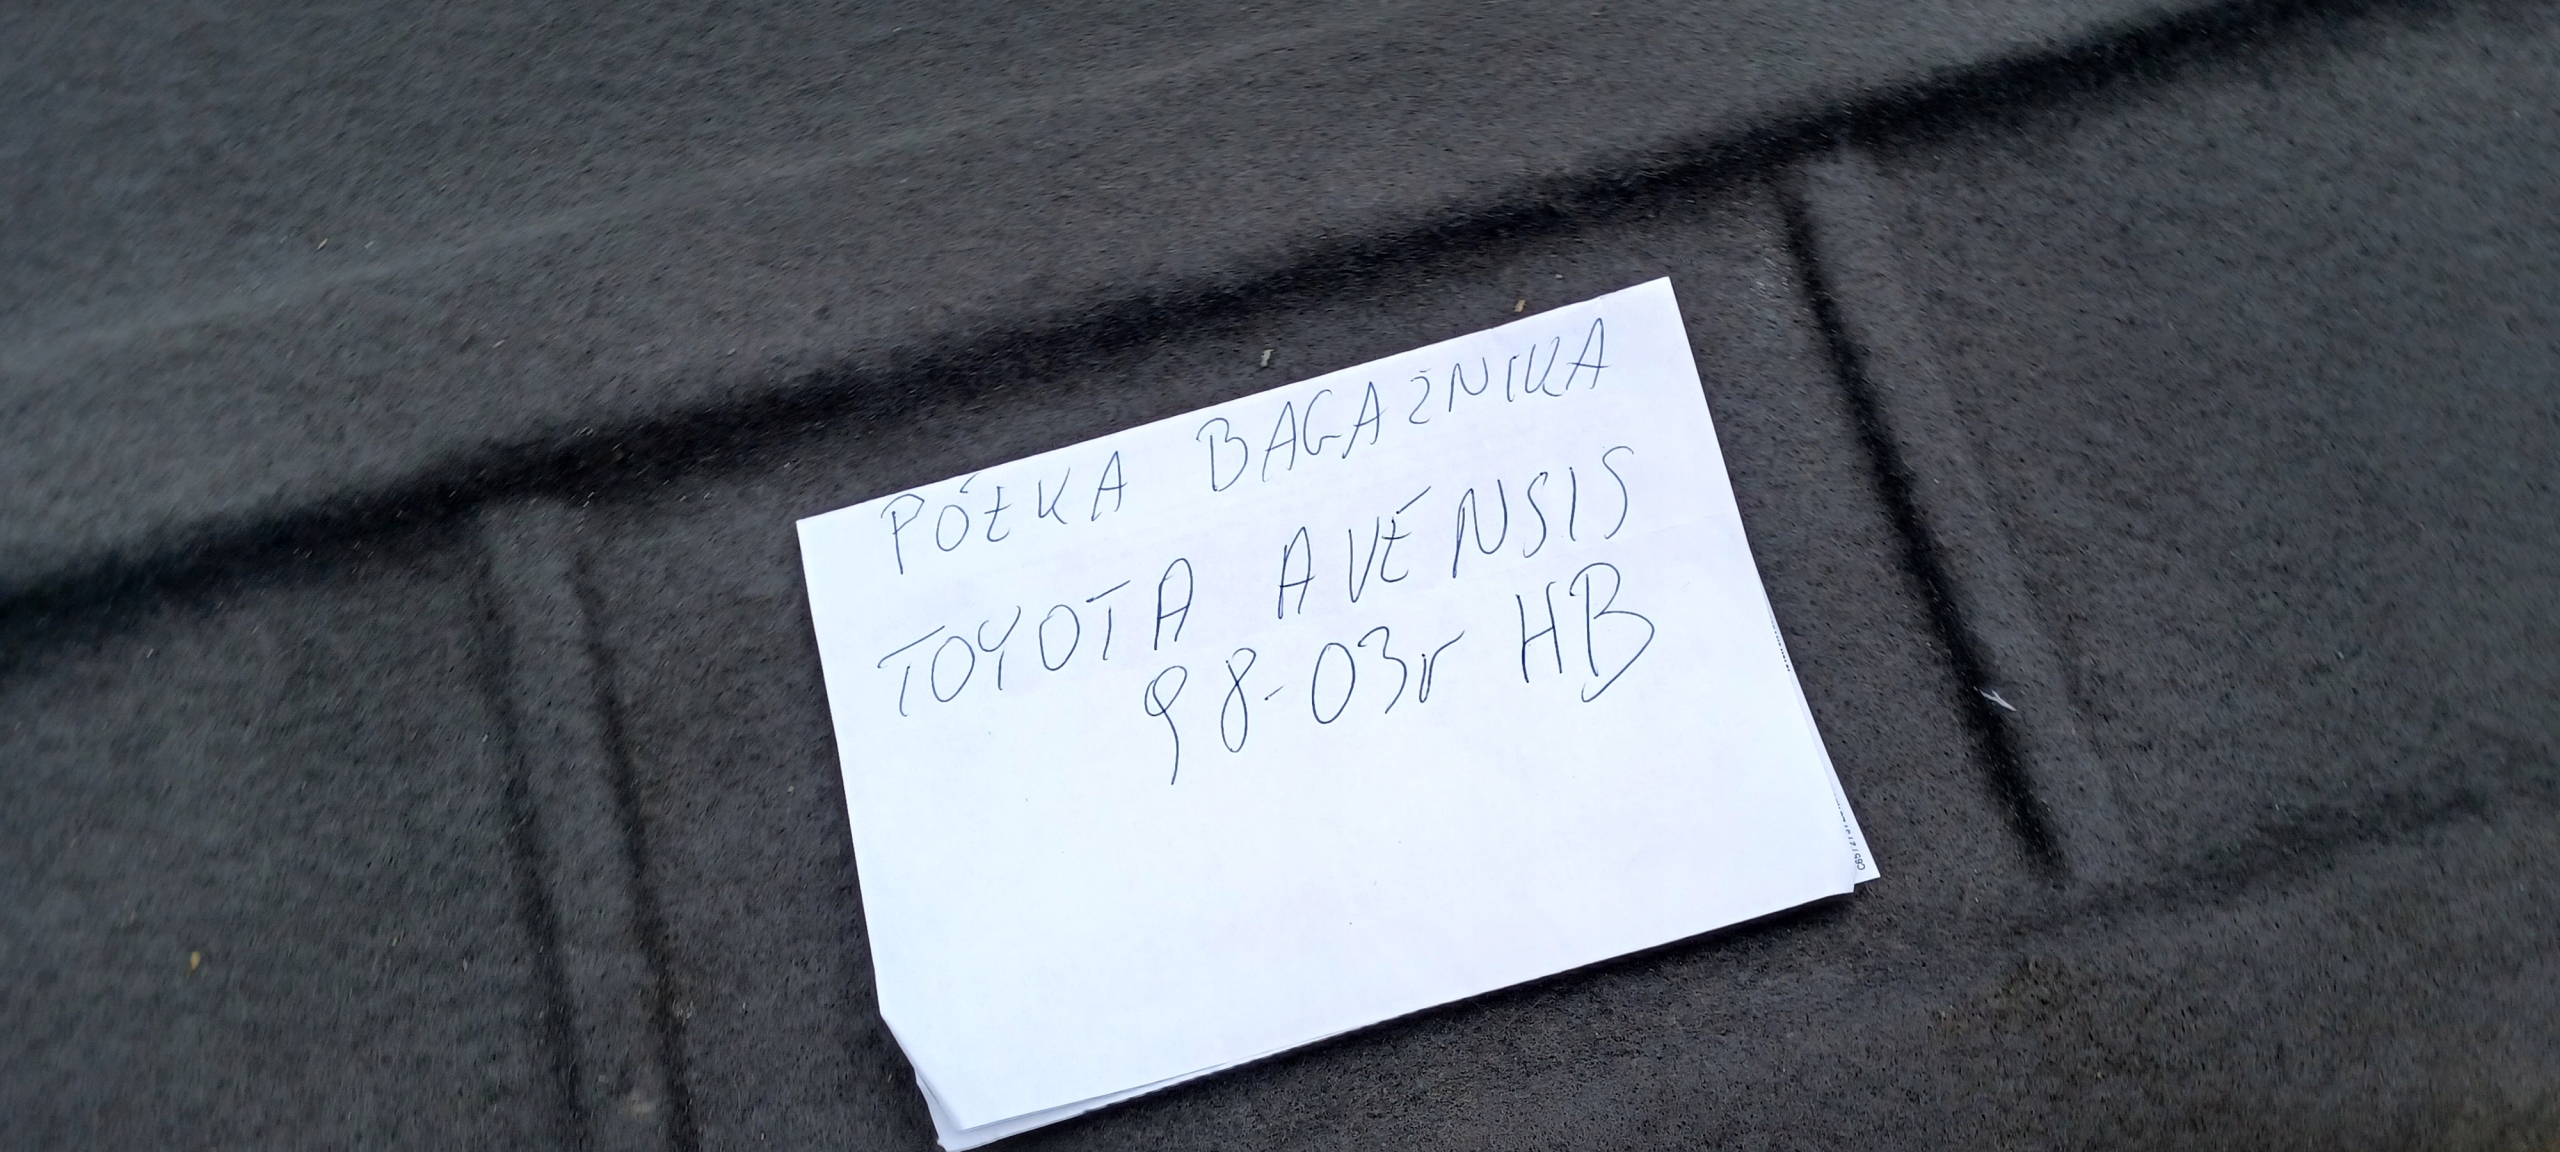 PÓŁKA BAGAŻNIKA
TOYOTA AVENSIS
98-03r HB